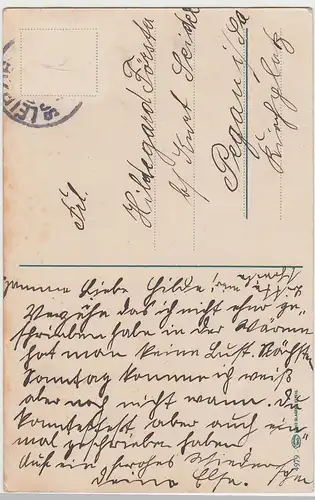 LEIP
Frl.
Hildegard Förster
b/ Kurt Seidel
Pegau i/Sa
Kirchplatz
Liebe Hilde!
Verzeihe das ich nicht ehr ge-
schrieben habe in der Wärme
hat man keine Lust. Nächsten
Sonntag komme ich weiß
aber noch nicht wann. Du
konntest aber auch ein-
mal geschrieben haben
Auf ein frohes Wiedersehn
Deine Else.
4979